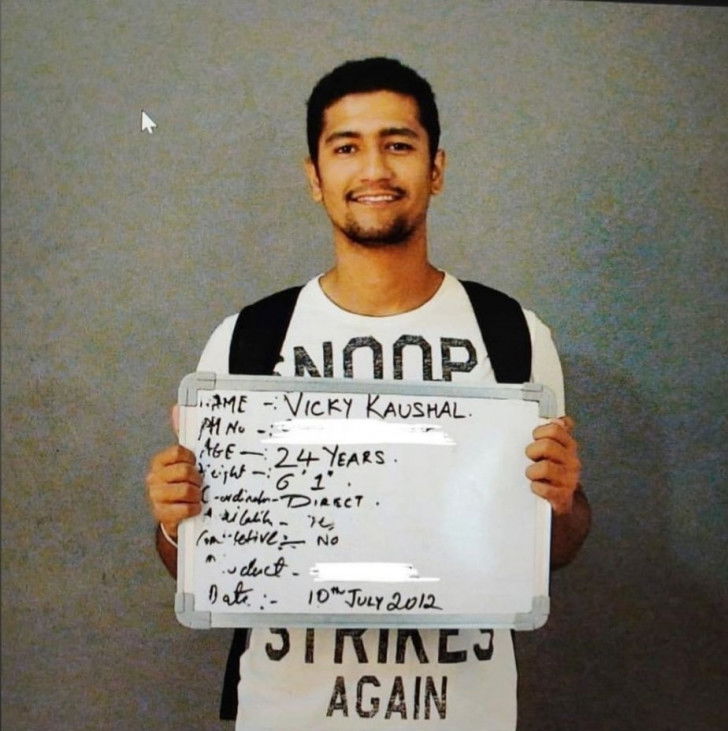 SNOOP
NAME -: VICKY KAUSHAL.
PH No -:
AGE - : 24 YEARS.
Height - : 6' 1".
Co-ordinator - DIRECT.
- Yes
- NO
Product -
Date :- 10th JULY 2012
STRIKES
AGAIN